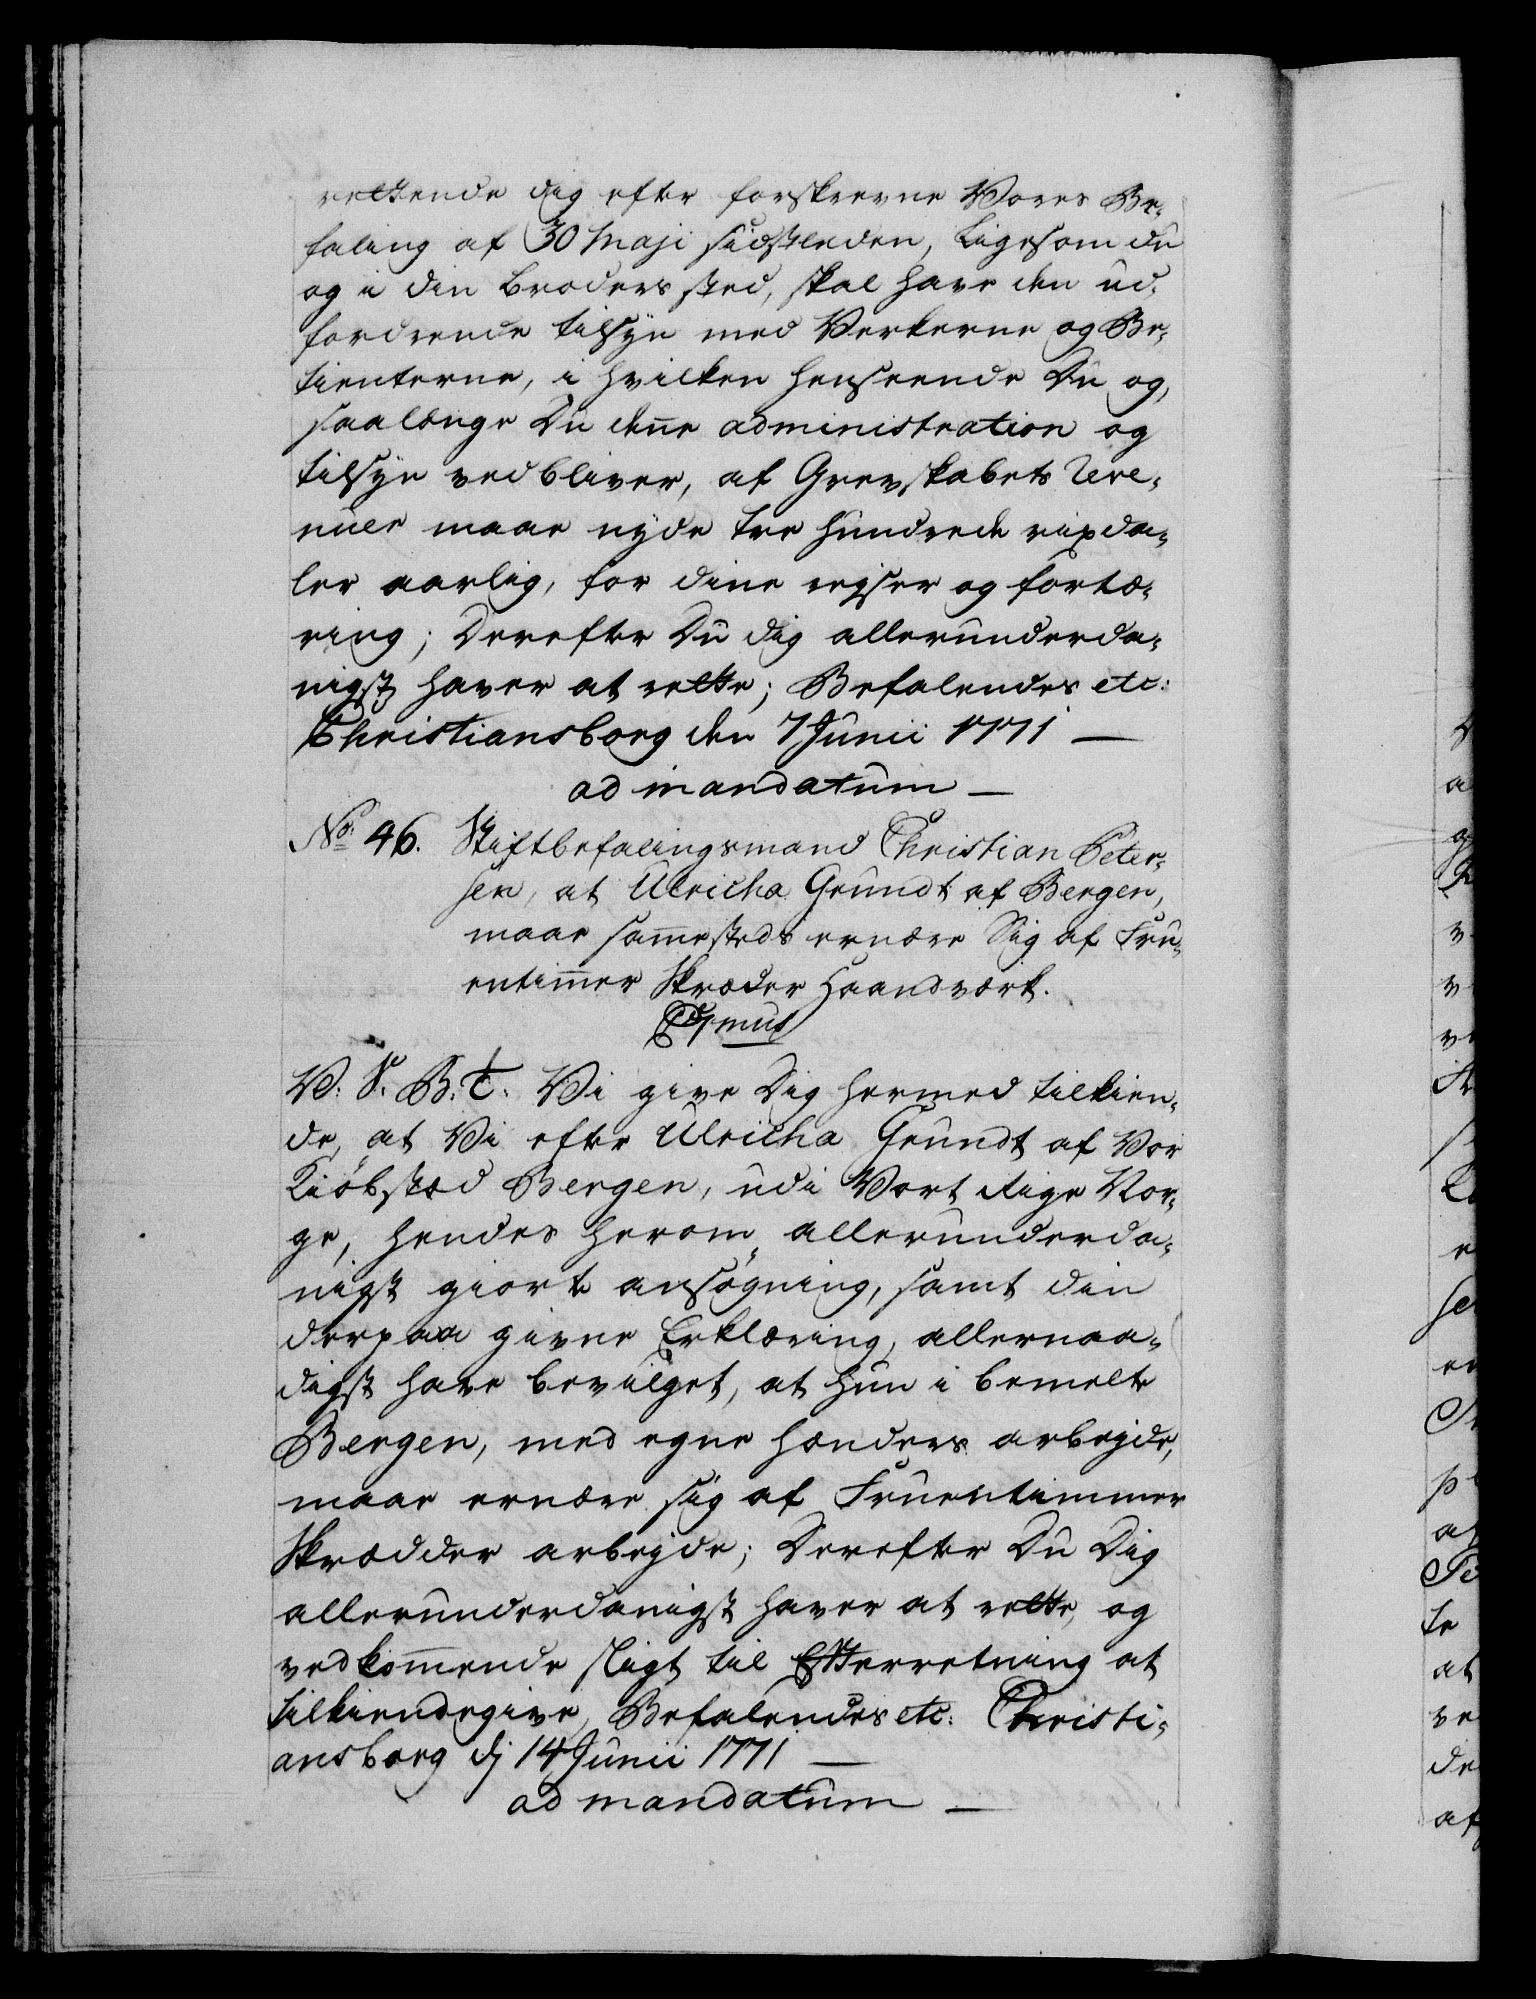 rettende dig efter forskrevne Vores Be-
faling af 30 Maji sidstleden, Ligesom du
og i din Broders sted, skal have den ud-
fordrende tilsyn med Verkerne og Be-
tienterne, i hvilken henseende Du og,
saalænge Du denne administration og
tilsyn vedbliver, af Grevskabets Reve-
nuer maae nyde tre hundrede rixda-
ler aarlig, for dine rejser og fortæ-
ring; Derefter Du dig allerunderda-
nigst haver at rette; Befalendes etc:
Christiansborg den 7 Junii 1771 —
ad mandatum —
No. 46. Stiftbefalingsmand Christian Peter-
sen, at Ulricha Grundt af Bergen,
maae sammesteds ernære Sig af Fru-
entimmer Skræder Haandværk.
C7mus
V. S. B. T. Vi give Dig hermed tilkien-
de, at Vi efter Ulricha Grundt af Vor
Kiöbstæd Bergen, udi Vort Rige Nor-
ge, hendes herom allerunderda-
nigst giorte ansøgning, samt din
derpaa givne Erklæring, allernaa-
digst have bevilget, at hun i bemelte
Bergen, med egne hænders arbejde,
maae ernære sig af Fruentimmer
Skrædder arbejde; Derefter Du Dig
allerunderdanigst haver at rette, og
vedkommende sligt til Efterretning at
tilkiendegive, Befalendes etc. Christi-
ansborg dj 14 Junii 1771 —
ad mandatum —